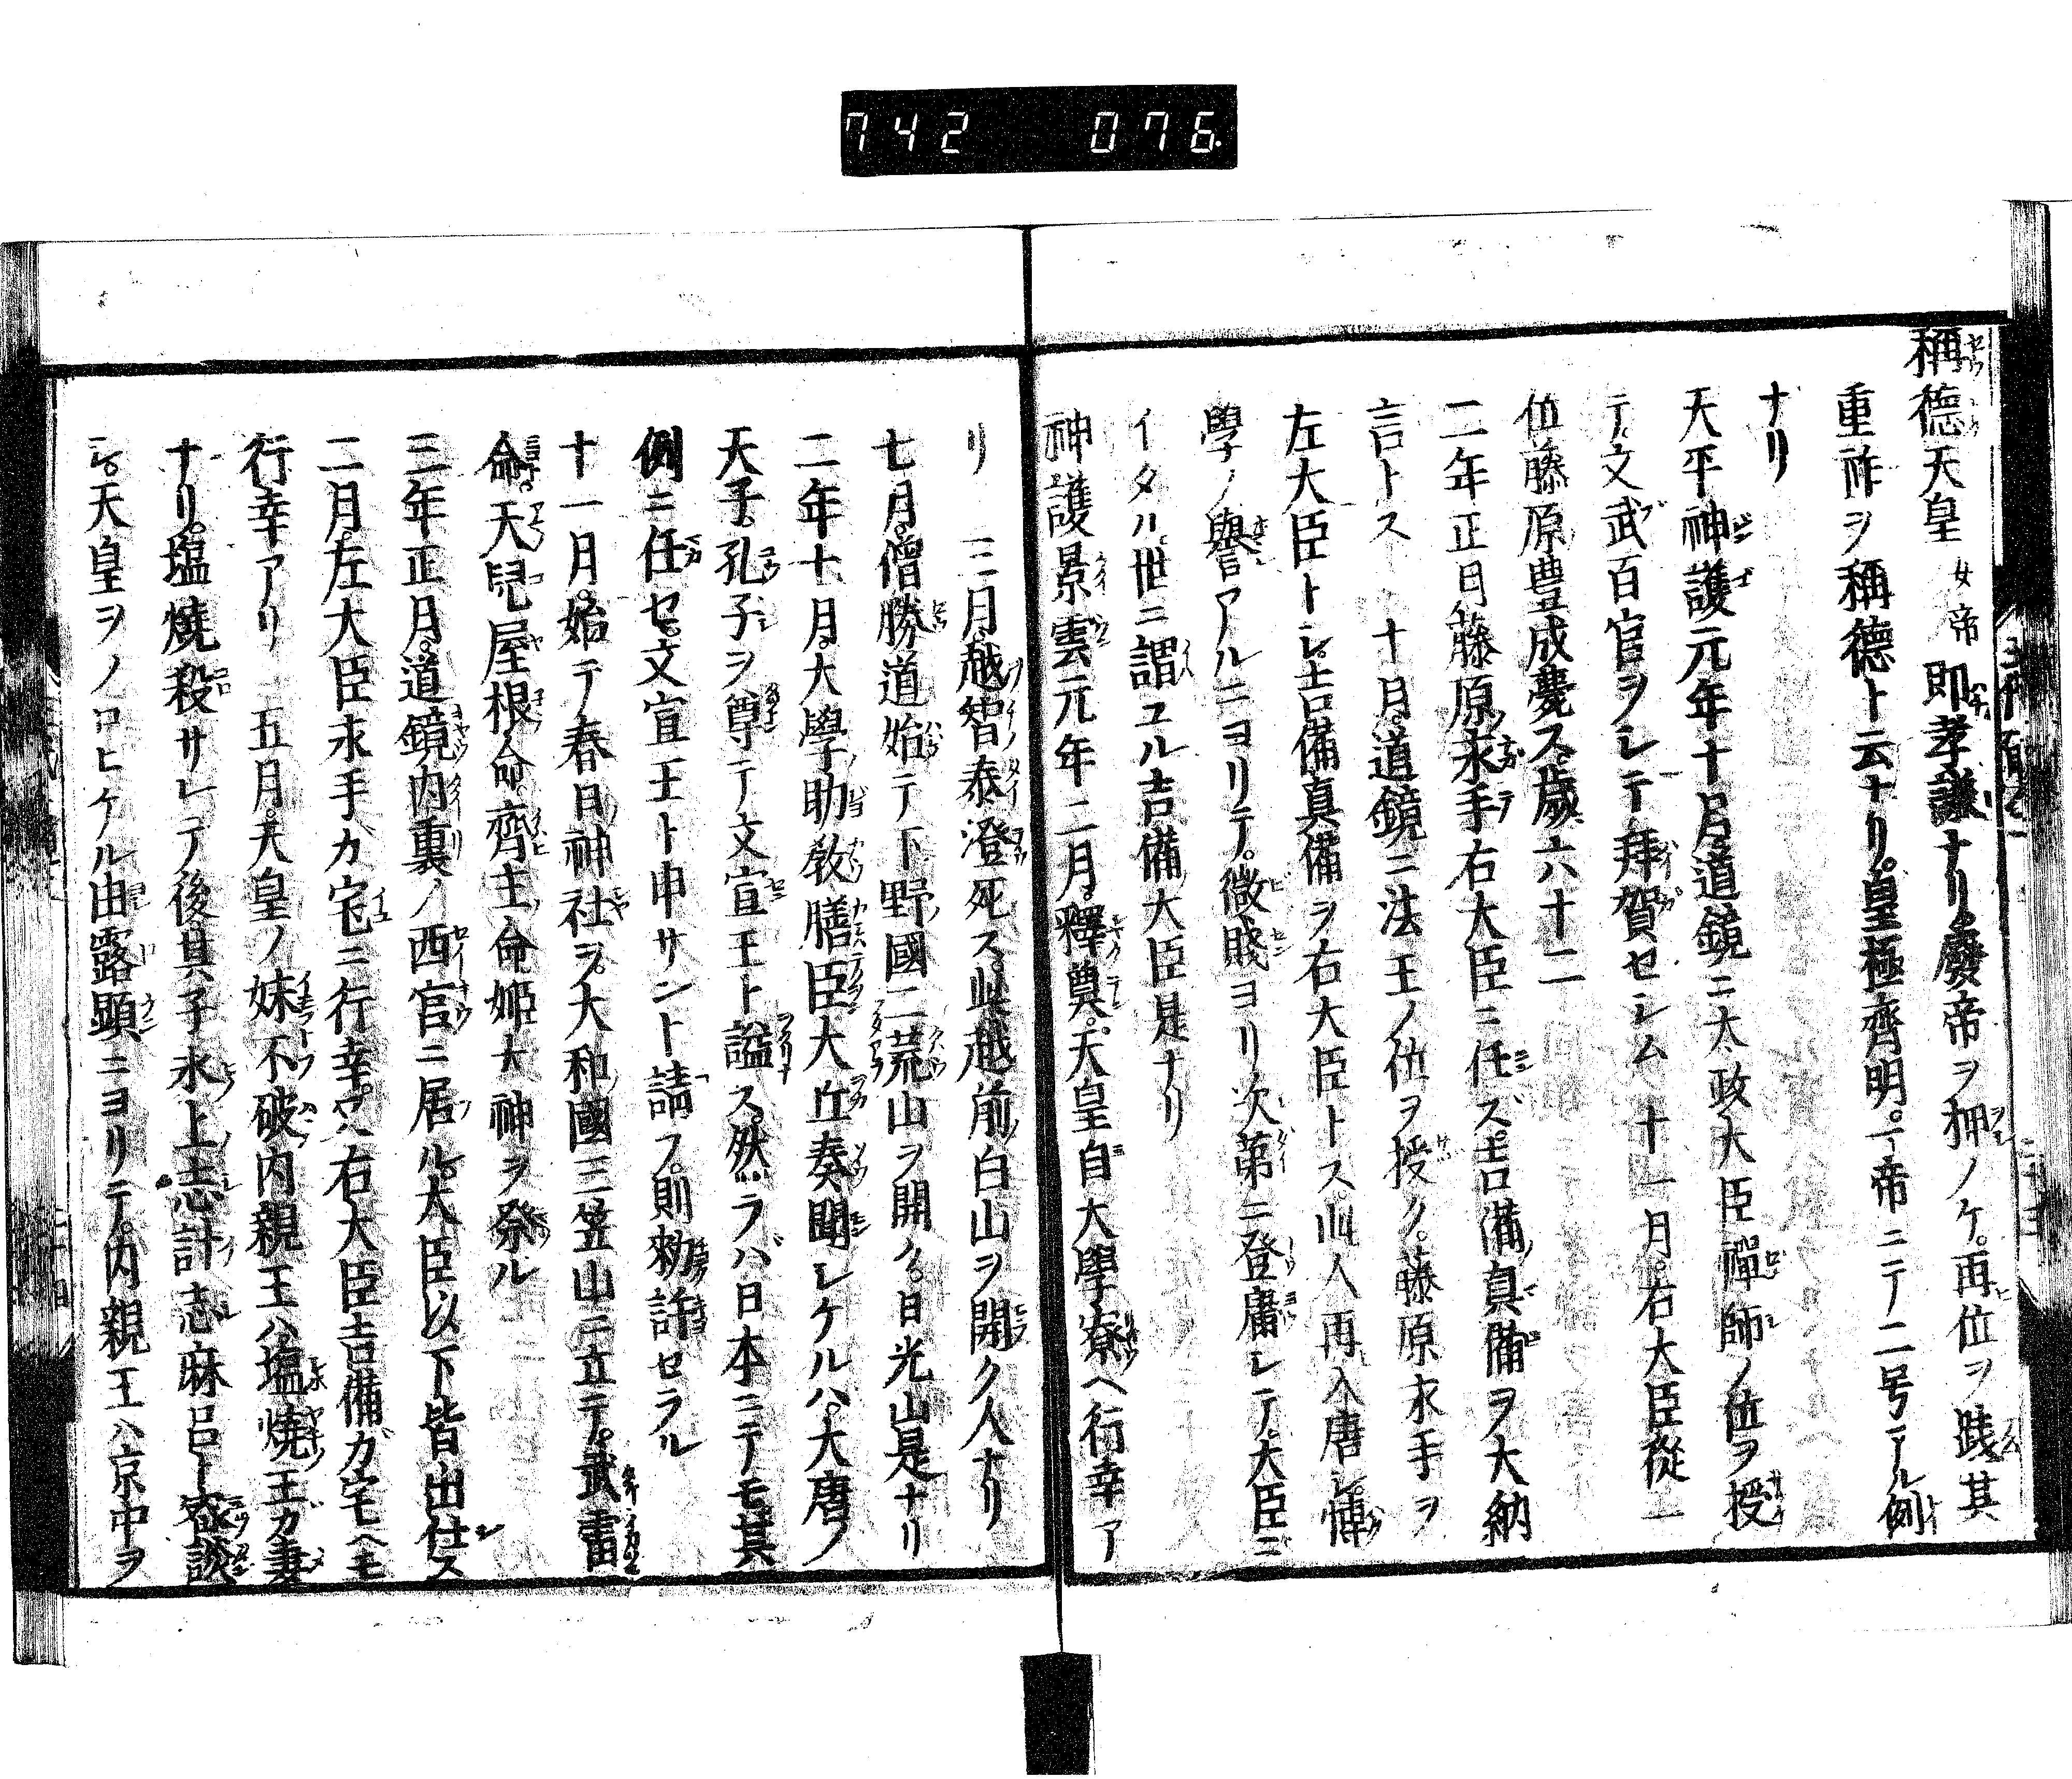 742 076
稱德天皇 女帝 即孝謙ナリ廢帝ヲ押ノケ。再位ヲ踐其
重祚ヲ稱德ト云ナリ。皇極齊明。一帝ニテ二号アル例
ナリ
天平神護元年十月。道鏡ニ太政大臣禪師ノ位ヲ授
テ。文武百官ヲシテ拜賀セシム 十一月。右大臣從一
位藤原豊成薨ス。歲六十二
二年正月藤原永手右大臣ニ任ズ。吉備真備ヲ大納
言トス 十月。道鏡ニ法王ノ位ヲ授ク。藤原永手ヲ
左大臣トシ。吉備真備ヲ右大臣トス。此人再入唐シ。博
學ノ譽アルニヨリテ。微賤ヨリ次第ニ登庸シテ。大臣ニ
イタル。世ニ謂ユル吉備大臣是ナリ
神護景雲元年二月。釋奠。天皇自大學寮ヘ行幸ア
リ 三月。越智泰澄死ス。此越前白山ヲ開ク人ナリ
七月。僧勝道始テ下野國二荒山ヲ開ク。日光山是ナリ
二年十月。大學助教膳臣大丘奏聞シケルハ。大唐ノ
天子。孔子ヲ尊テ文宣王ト謚ス。然ラバ日本ニテモ其
例ニ任セ。文宣王ト申サント請フ。則勅許セラル
十一月。始テ春日神社ヲ。大和國三笠山ニ立テ。武雷
命。天兒屋根命。齊主命姬大神ヲ祭ル
三年正月。道鏡内裏ノ西宮ニ居ル。大臣以下皆出仕ス
二月。左大臣永手ガ宅ニ行幸。又右大臣吉備ガ宅ヘモ
行幸アリ 五月。天皇ノ妹不破内親王ハ。塩燒王ガ妻
ナリ。塩燒殺サレテ後其子氷上志計志麻呂ト密談
シ。天皇ヲノロヒケル由露顯ニヨリテ。内親王ハ京中ヲ